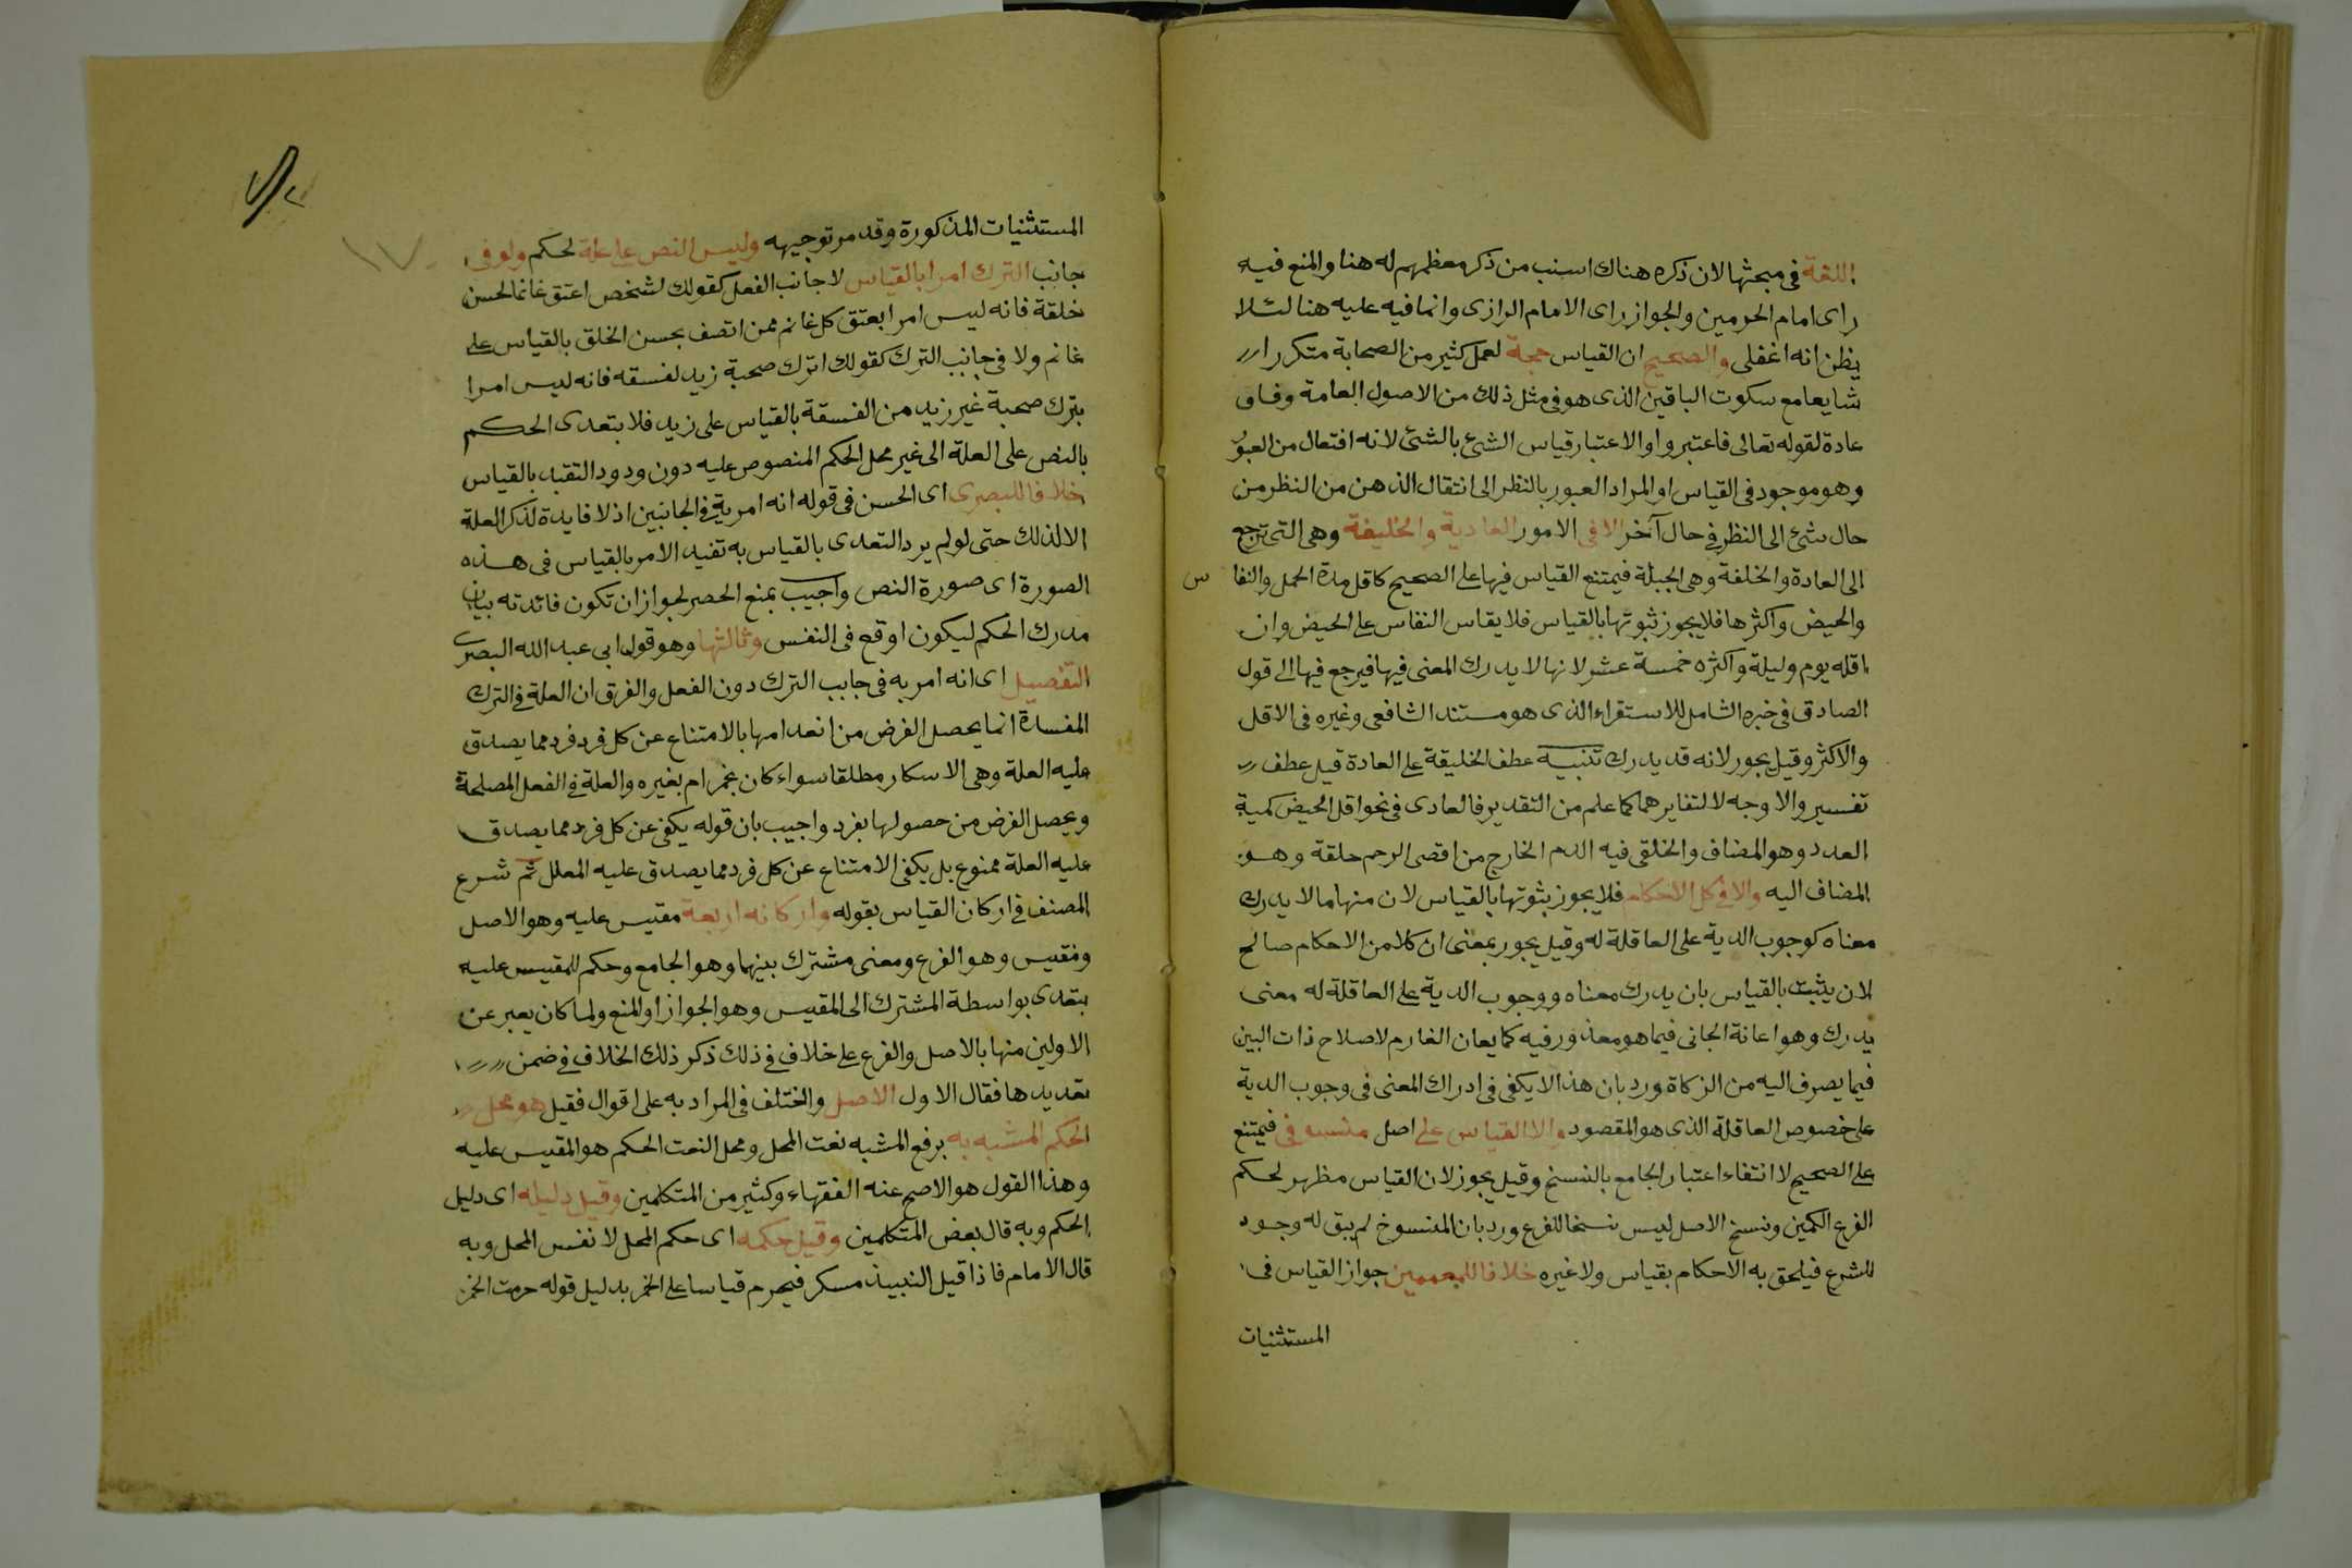 اللغة فى مبحثها لان ذكره هناك اسنب من ذكر معظمهم له هنا والمنع فيه
راى امام الحرمين والجواز راى الامام الرازى وانما فيه عليه هنا لئلا
يظن انه اغفلى والصحيح ان القياس حجة لعمل كثير من الصحابة متكررا
شايعا مع سكوت الباقين الذى هو فى مثل ذلك من الاصول العامة وفاق
عادة لقوله تعالى فاعتبروا والاعتبار قياس الشئ بالشئ لانه افتعال من العبور
وهو موجود فى القياس او المراد العبور بالنظر الى انتقال الذهن من النظر من
حال شئ الى النظر فى حال آخر الا فى الامور العادية والخليفة وهى التى ترجع
الى العادة والخلفة وهى الجبلة فيمتنع القياس فيها على الصحيح كاقل مدة الحمل والنفاس
والحيض واكثرها فلا يجوز ثبوتها بالقياس فلا يقاس النفاس على الحيض وان
اقله يوم وليلة واكثره خمسة عشر لانها لا يدرك المعنى فيها فيرجع فيها الى قول
الصادق فى خبره الشامل للاستقراء الذى هو مستند الشافعى وغيره فى الاقل
والاكثر وقيل يجوز لانه قد يدرك تنبيه عطف الخليقة على العادة قيل عطف
تفسير والاوجه لا لتغايرهما كما علم من التقدير فالعادى فى نحو اقل الحيض كمية
العدد وهو المضاف والخلقى فيه الدم الخارج من اقصى الرحم خلقة وهو
المضاف اليه والا فى كل الاحكام فلا يجوز ثبوتها بالقياس لان منها ما لا يدرك
معناه كوجوب الدية على العاقلة له وقيل يجوز بمعنى ان كلا من الاحكام صالح
لان يثبت بالقياس بان يدرك معناه ووجوب الدية على العاقلة له معنى
يدرك وهو اعانة الجانى فيما هو معذور فيه كما يعان الغارم لاصلاح ذات البين
فيما يصرف اليه من الزكاة ورد بان هذا لا يكفى فى ادراك المعنى فى وجوب الدية
على خصوص العاقلة الذى هو المقصود والا القياس على اصل منسوخ فيمتنع
على الصحيح لا انتفاء اعتبار الجامع بالنسخ وقيل يجوز لان القياس مظهر لحكم
الفرع الكمين ونسخ الاصل ليس نسخا للفرع ورد بان المنسوخ لم يبق له وجود
للشرع فيلحق به الاحكام بقياس ولا غيره خلافا للمعممين جواز القياس فى
المستثنيات
المستثنيات المذكورة وقد مر توجيهه وليس النص على علة لحكم ولو فى
جانب الترك امرا بالقياس لا جانب الفعل كقولك لشخص اعتق غانما لحسن
خلقة فانه ليس امرا بعتق كل غانم ممن اتصف بحسن الخلق بالقياس على
غانم ولا فى جانب الترك كقولك اترك صحبة زيد لفسقه فانه ليس امرا
بترك صحبة غير زيد من الفسقة بالقياس على زيد فلا بتعدى الحكم
بالنص على العلة الى غير محل الحكم المنصوص عليه دون ودود التقبد بالقياس
خلافا للبصرى اى الحسن فى قوله انه امر به فى الجانبين اذ لا فايدة لذكر العلة
الا لذلك حتى لو لم يرد التعدى بالقياس به تفيد الامر بالقياس فى هذه
الصورة اى صورة النص واجيب بمنع الحصر لجواز ان تكون فائدته بيان
مدرك الحكم ليكون اوقع فى النفس وثالثها وهو قول ابى عبد الله البصرى
التفصيل اى انه امر به فى جانب الترك دون الفعل والفرق ان العلة فى الترك
المفسدة انما يحصل الغرض من انعدامها بالامتناع عن كل فرد فرد مما يصدق
عليه العلة وهى الاسكار مطلقا سواء كان بخمر ام بغيره والعلة فى الفعل المصلحة
ويحصل الغرض من حصولها بفرد واجيب بان قوله يكفى عن كل فرد مما يصدق
عليه العلة ممنوع بل يكفى الامتناع عن كل فرد مما يصدق عليه المعلل ثم شرع
المصنف فى اركان القياس بقوله واركانه اربعة مقيس عليه وهو الاصل
ومقيس وهو الفرع ومعنى مشترك بينهما وهو الجامع وحكم للمقيس عليه
بتعدى بواسطة المشترك الى المقيس وهو الجواز او المنع ولما كان يعبر عن
الاولين منها بالاصل والفرع على خلاف فى ذلك ذكر ذلك الخلاف فى ضمن
تعديدها فقال الاول الاصل واختلف فى المراد به على اقوال فقيل هو محل
الحكم المشبه به برفع المشبه نعت المحل ومحل النعت الحكم هو المقيس عليه
وهذا القول هو الاصح عنه الفقهاء وكثير من المتكلمين وقيل دليله اى دليل
الحكم وبه قال بعض المتكلمين وقيل حكمه اى حكم المحل لا نفس المحل وبه
قال الامام فاذا قيل النبيذ مسكر فيحرم قياسا على الخمر بدليل قوله حرمت الخمر